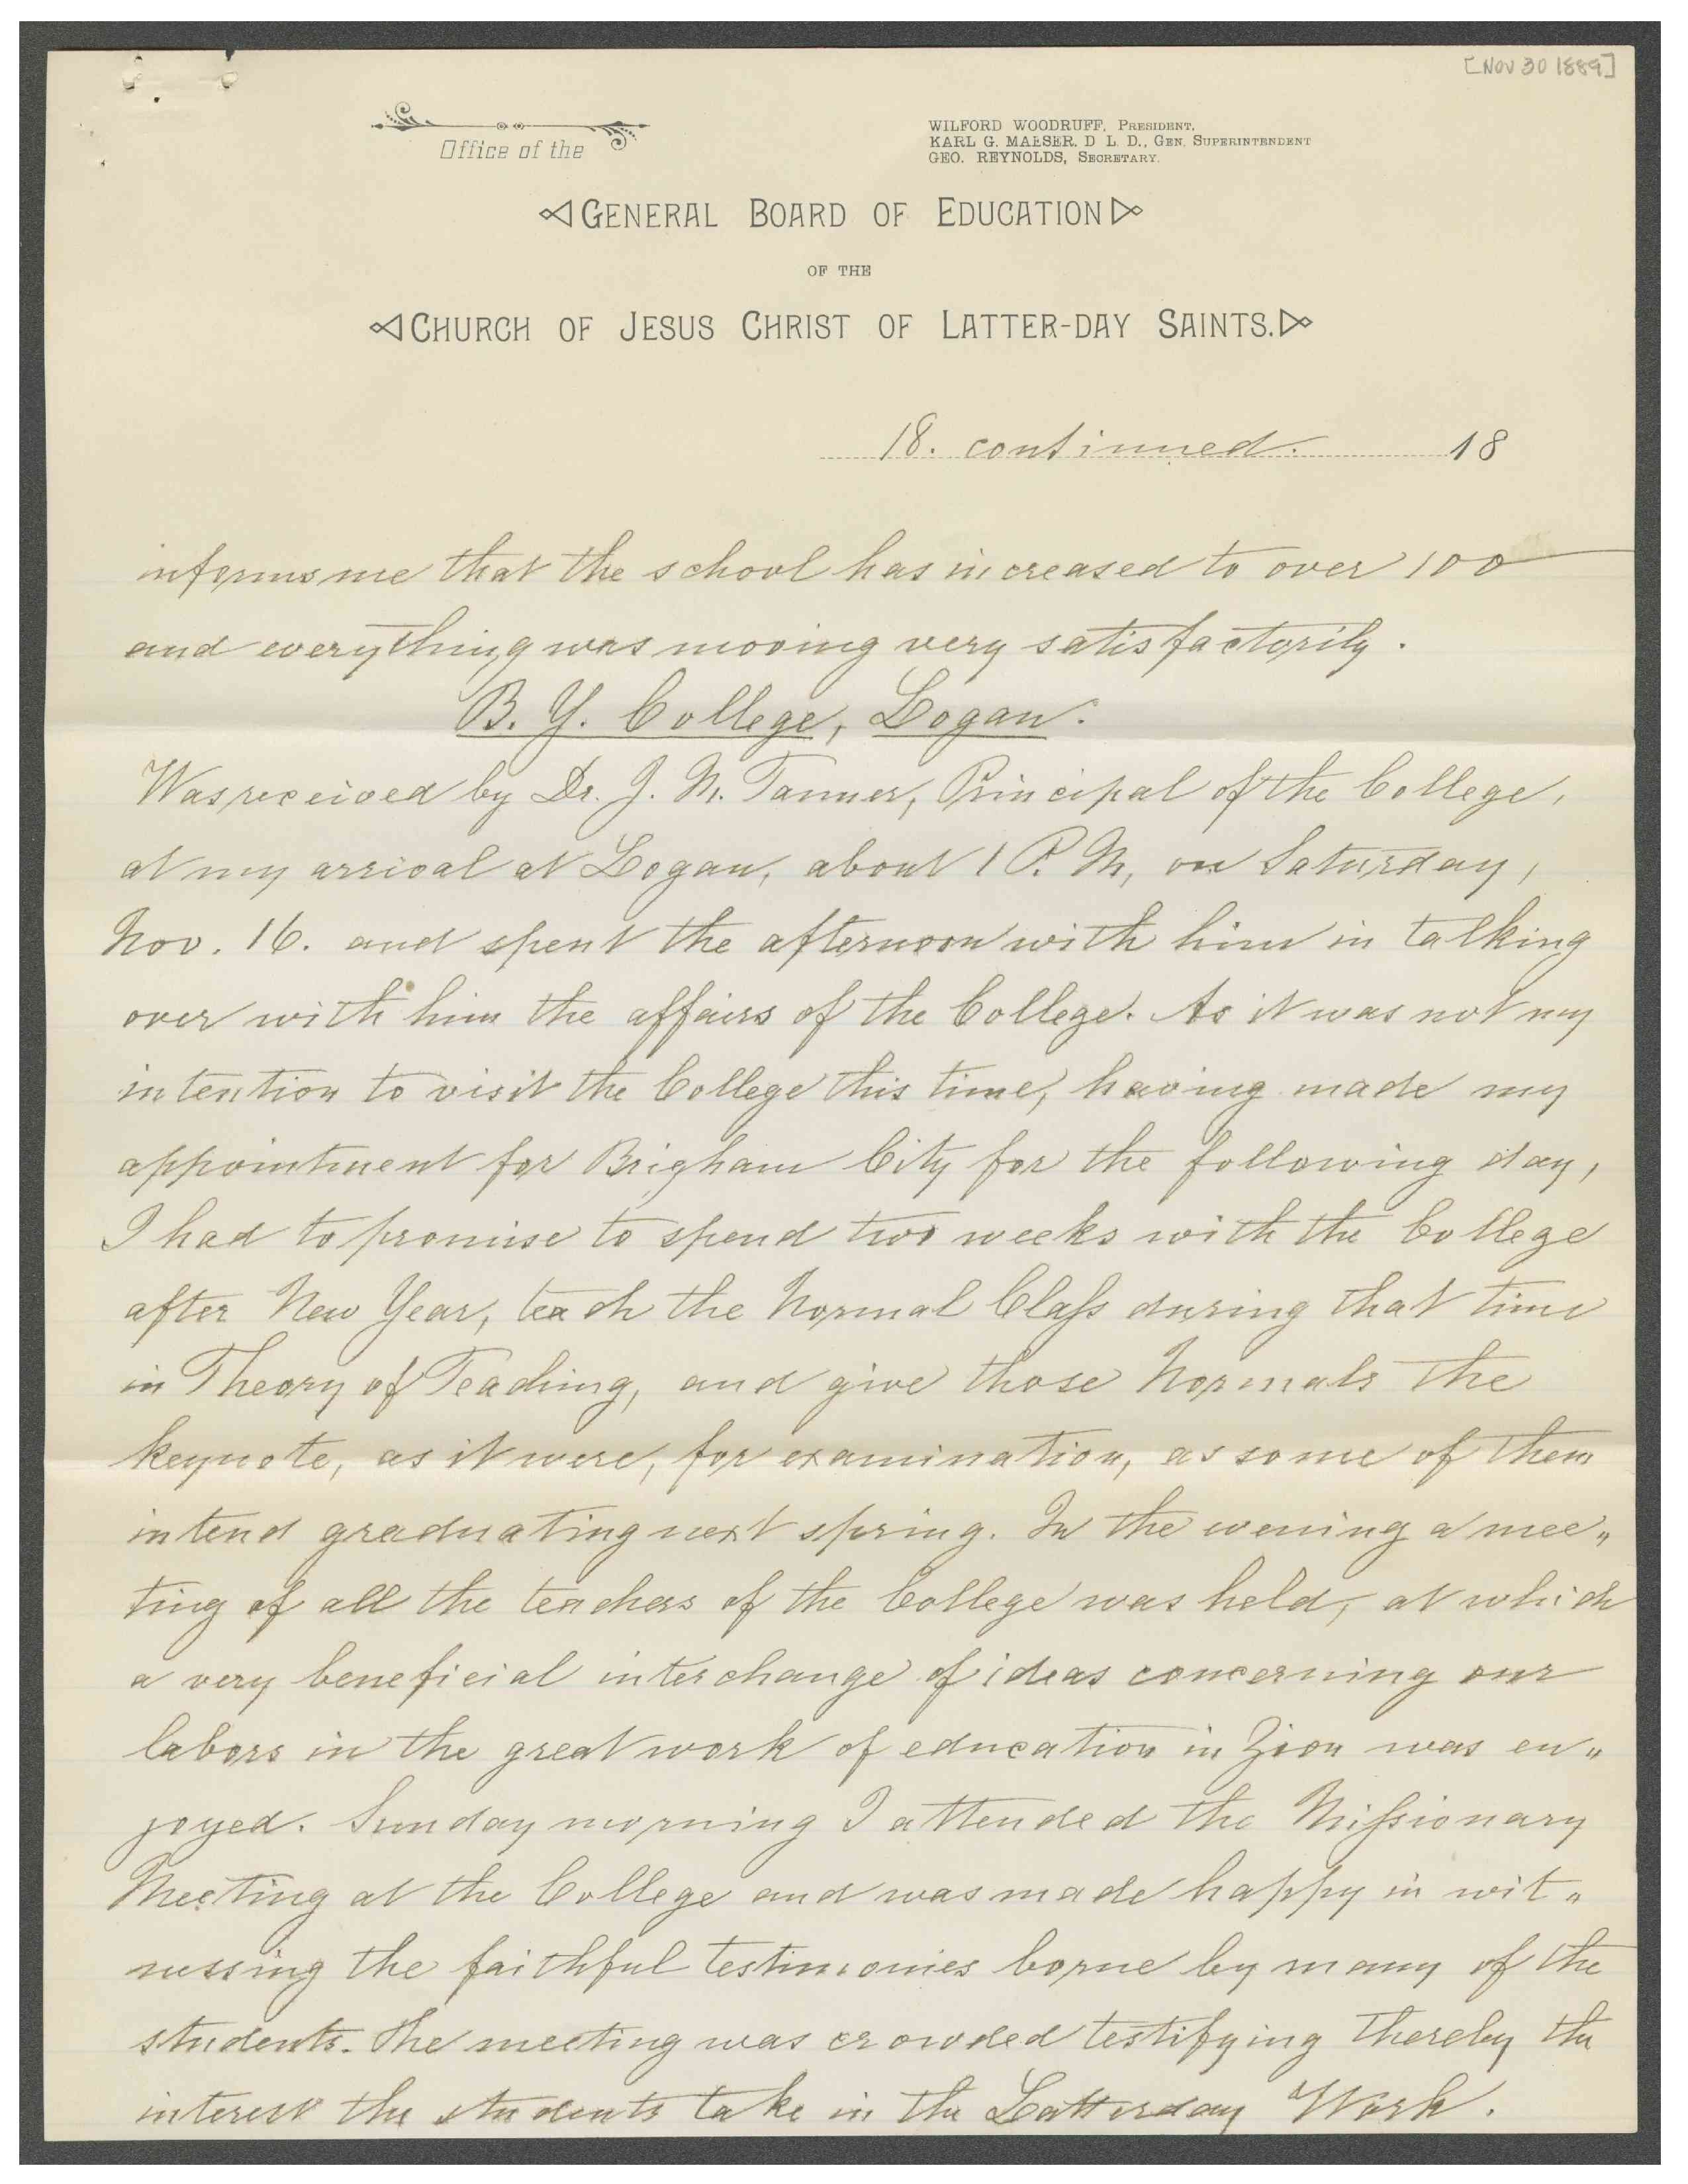 [NOV 30 1889]
Office of the
WILFORD WOODRUFF, PRESIDENT.
KARL G. MAESER. D L. D., GEN. SUPERINTENDENT
GEO. REYNOLDS, SECRETARY.
GENERAL BOARD OF EDUCATION
OF THE
CHURCH OF JESUS CHRIST OF LATTER-DAY SAINTS.
18. continued. 18
informs me that the school has increased to over 100
and everything was moving very satisfactorily.
B. Y. College, Logan.
Was received by Dr. J. M. Tanner, Principal of the College,
at my arrival at Logan, about 1 P. M, on Saturday,
Nov. 16. and spent the afternoon with him in talking
over with him the affairs of the College. As it was not my
intention to visit the College this time, having made my
appointment for Brigham City for the following day,
I had to promise to spend two weeks with the College
after New Year, teach the Normal Claſs during that time
in Theory of Teaching, and give those Normals the
keynote, as it were, for examination, as some of them
intend graduating next spring. In the evening a mee„
ting of all the teachers of the College was held, at which
a very beneficial interchange of ideas concerning our
labors in the great work of education in Zion was en„
joyed. Sunday morning I attended the Miſsionary
Meeting at the College and was made happy in wit„
nessing the faithful testimonies borne by many of the
students. The meeting was crowded testifying thereby the
interest the students take in the Latterday Work.